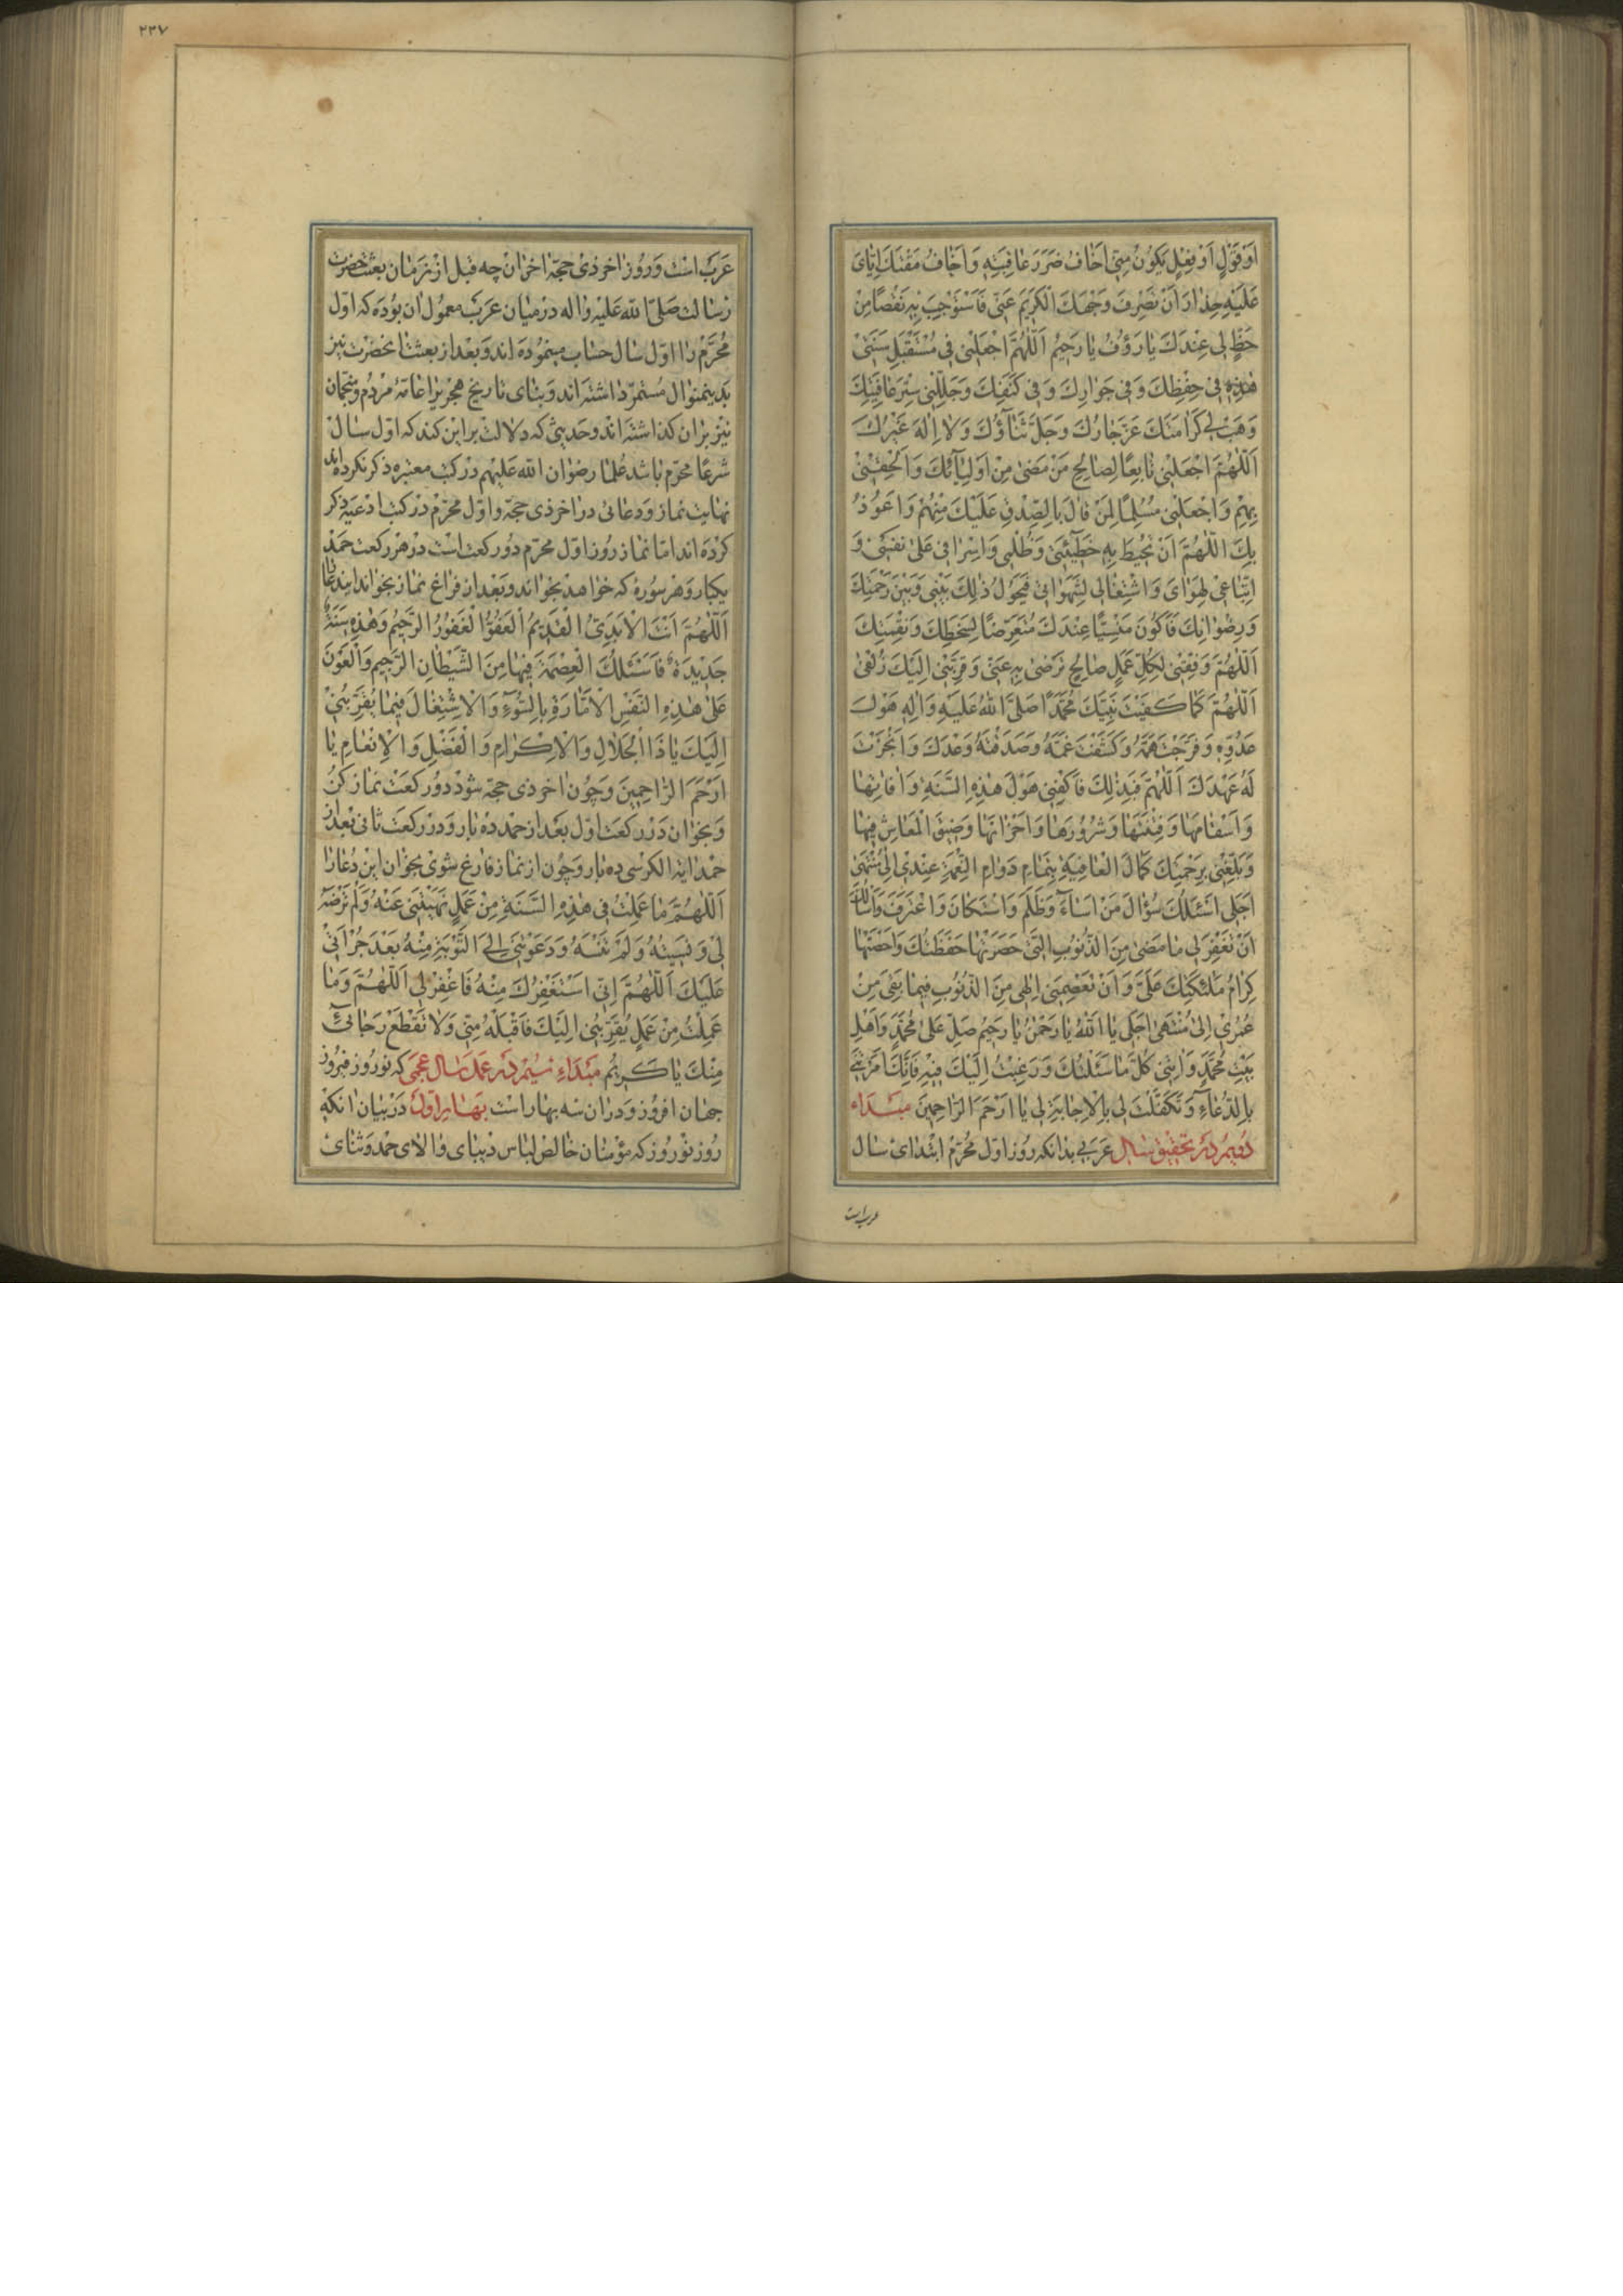 اَوْ قَوْلٍ اَوْ فِعْلٍ يَكُونُ مِنّى اَخٰافُ ضَرَرَ عٰاقِبَتِهِ وَ اَخٰافُ مَقْتَكَ اِيّٰاىَ
عَلَيْهِ حِذٰارَ اَنْ تَصْرِفَ وَجْهَكَ الْكَريمَ عَنّى فَاَسْتَوْجِبَ بِهِ نَقْصًا مِنْ
حَظٍّ لى عِنْدَكَ يٰا رَؤُفُ يٰا رَحيمُ اَللّٰهُمَّ اجْعَلْنى فى مُسْتَقْبَلِ سَنَتى
هٰذِهِ فى حِفْظِكَ وَ فى جَوٰارِكَ وَ فى كَنَفِكَ وَ جَلِّلْنى سِتْرَ عٰافِيَتِكَ
وَ هَبْ لى كَرٰامَتَكَ عَزَّ جٰارُكَ وَ جَلَّ ثَنٰاؤُكَ وَ لاٰ اِلٰهَ غَيْرُكَ
اَللّٰهُمَّ اجْعَلْنى تٰابِعًا لِصٰالِحِ مَنْ مَضىٰ مِنْ اَوْلِيٰائِكَ وَ اَلْحِقْنى
بِهِمْ وَ اجْعَلْنى مُسْلِمًا لِمَنْ قٰالَ بِالصِّدْقِ عَلَيْكَ مِنْهُمْ وَ اَعُوذُ
بِكَ اللّٰهُمَّ اَنْ تُحيطَ بِهِ خَطيئَتى وَ ظُلْمى وَ اِسْرٰافى عَلىٰ نَفْسى وَ
اتِّبٰاعى لِهَوٰاىَ وَ اشْتِغٰالى لِشَهَوٰاتى فَيَحُولُ ذٰلِكَ بَيْنى وَ بَيْنَ رَحْمَتِكَ
وَ رِضْوٰانِكَ فَاَكُونَ مَنْسِيًّا عِنْدَكَ مُتَعَرِّضًا لِسَخَطِكَ وَ نِقْمَتِكَ
اَللّٰهُمَّ وَفِّقْنى لِكُلِّ عَمَلٍ صٰالِحٍ تَرْضىٰ بِهِ عَنّى وَ قَرِّبْنى اِلَيْكَ زُلْفىٰ
اَللّٰهُمَّ كَمٰا كَفَيْتَ نَبِيَّكَ مُحَمَّدًا صَلَّى اللهُ عَلَيْهِ وَ اٰلِهِ هَوْلَ
عَدُوِّهِ وَ فَرَّجْتَ هَمَّهُ وَ كَشَفْتَ غَمَّهُ وَ صَدَقْتَهُ وَعْدَكَ وَ اَنْجَزْتَ
لَهُ عَهْدَكَ اَللّٰهُمَّ فَبِذٰلِكَ فَاكْفِنى هَوْلَ هٰذِهِ السَّنَةِ وَ اٰفٰاتِهٰا
وَ اَسْقٰامَهٰا وَ فِتْنَتَهٰا وَ شُرُورَهٰا وَ اَحْزٰانَهٰا وَ ضيقَ الْمَعٰاشِ فيهٰا
وَ بَلِّغْنى بِرَحْمَتِكَ كَمٰالَ الْعٰافِيَةِ بِتَمٰامِ دَوٰامِ النِّعْمَةِ عِنْدى اِلىٰ مُنْتَهىٰ
اَجَلى اَسْئَلُكَ سُؤٰالَ مَنْ اَسٰاءَ وَ ظَلَمَ وَ اسْتَكٰانَ وَ اعْتَرَفَ وَ اَسْاَلُكَ
اَنْ تَغْفِرَ لى مٰا مَضىٰ مِنَ الذُّنُوبِ الَّتى حَصَرَتْهٰا حَفَظَتُكَ وَ اَحْصَتْهٰا
كِرٰامُ مَلٰئِكَتِكَ عَلَىَّ وَ اَنْ تَعْصِمَنى اِلٰهى مِنَ الذُّنُوبِ فيمٰا بَقِىَ مِنْ
عُمْرى اِلىٰ مُنْتَهىٰ اَجَلى يٰا اَللهُ يٰا رَحْمٰنُ يٰا رَحيمُ صَلِّ عَلىٰ مُحَمَّدٍ وَ اَهْلِ
بَيْتِ مُحَمَّدٍ وَ اٰتِنى كُلَّ مٰا سَئَلْتُكَ وَ رَغِبْتُ اِلَيْكَ فيهِ فَاِنَّكَ اَمَرْتَنى
بِالدُّعٰاءِ وَ تَكَفَّلْتَ لى بِالْاِجٰابَةِ لى يٰا اَرْحَمَ الرّٰاحِمينَ مبتداء
دويم در تحقيق سال عربى بدانكه روز اول محرم ابتداى سال
عرب است
٢٢٧
عرب است و روز اخر ذى حجّه اخر ان چه قبل از زمان بعثت حضرت
رسالت صلّى الله عليه و اله در ميان عرب معمول ان بوده كه اوّل
محرّم را اوّل سال حساب مينموده اند و بعد از بعثت انحضرت نيز
بدينمنوال مستمرّ داشته اند و بناى تاريخ هجريرا عامّهٔ مردم و منجّمان
نيز بران گذاشته اند و حديثى كه دلالت بر اين كند كه اوّل سال
شرعا محرّم باشد علما رضوان الله عليهم در كتب معتبره ذكر نكرده اند
نهايت نماز و دعائى در اخر ذى حجّه و اوّل محرّم در كتب ادعيه ذكر
كرده اند امّا نماز روز اوّل محرّم دو ركعت است در هر ركعت حمد
يكبار و هر سوره كه خواهد بخواند و بعد از فراغ نماز بخواند ايندعا را
اَللّٰهُمَّ اَنْتَ الْاَبَدِىُّ الْقَديمُ الْعَفُوُّ الْغَفُورُ الرَّحيمُ وَ هٰذِهِ سَنَةٌ
جَديدَةٌ فَاَسْئَلُكَ الْعِصْمَةَ فيهٰا مِنَ الشَّيْطٰانِ الرَّجيمِ وَ الْعَوْنَ
عَلىٰ هٰذِهِ النَّفْسِ الْاَمّٰارَةِ بِالسُّوءِ وَ الْاِشْتِغٰالَ فيمٰا يُقَرِّبُنى
اِلَيْكَ يٰا ذَا الْجَلاٰلِ وَ الْاِكْرٰامِ وَ الْفَضْلِ وَ الْاِنْعٰامِ يٰا
اَرْحَمَ الرّٰاحِمينَ و چون اخر ذى حجّه شود دو ركعت نماز كن
و بخوان در ركعت اوّل بعد از حمد ده بار و در ركعت ثانى بعد از
حمد اية الكرسى ده بار و چون از نماز فارغ شوى بخوان اين دعا را
اَللّٰهُمَّ مٰا عَمِلْتُ فى هٰذِهِ السَّنَةِ مِنْ عَمَلٍ نَهَيْتَنى عَنْهُ وَ لَمْ تَرْضَهُ
لى وَ نَسيتُهُ وَ لَمْ تَنْسَهُ وَ دَعَوْتَنى اِلَى التَّوْبَةِ مِنْهُ بَعْدَ جُرْاَتى
عَلَيْكَ اَللّٰهُمَّ اِنّى اَسْتَغْفِرُكَ مِنْهُ فَاغْفِرْ لى اَللّٰهُمَّ وَ مٰا
عَمِلْتُ مِنْ عَمَلٍ يُقَرِّبُنى اِلَيْكَ فَاقْبَلْهُ مِنّى وَ لاٰ تَقْطَعْ رَجٰائى
مِنْكَ يٰا كَريمُ مبتداء سيم در عمل سال عجمى كه نوروز فيروز
جهان افروز و دران سه بهار است بهار اول در بيان انكه
روز نوروز كه مؤمنان خالص لباس ديباى والاى حمد و ثناى